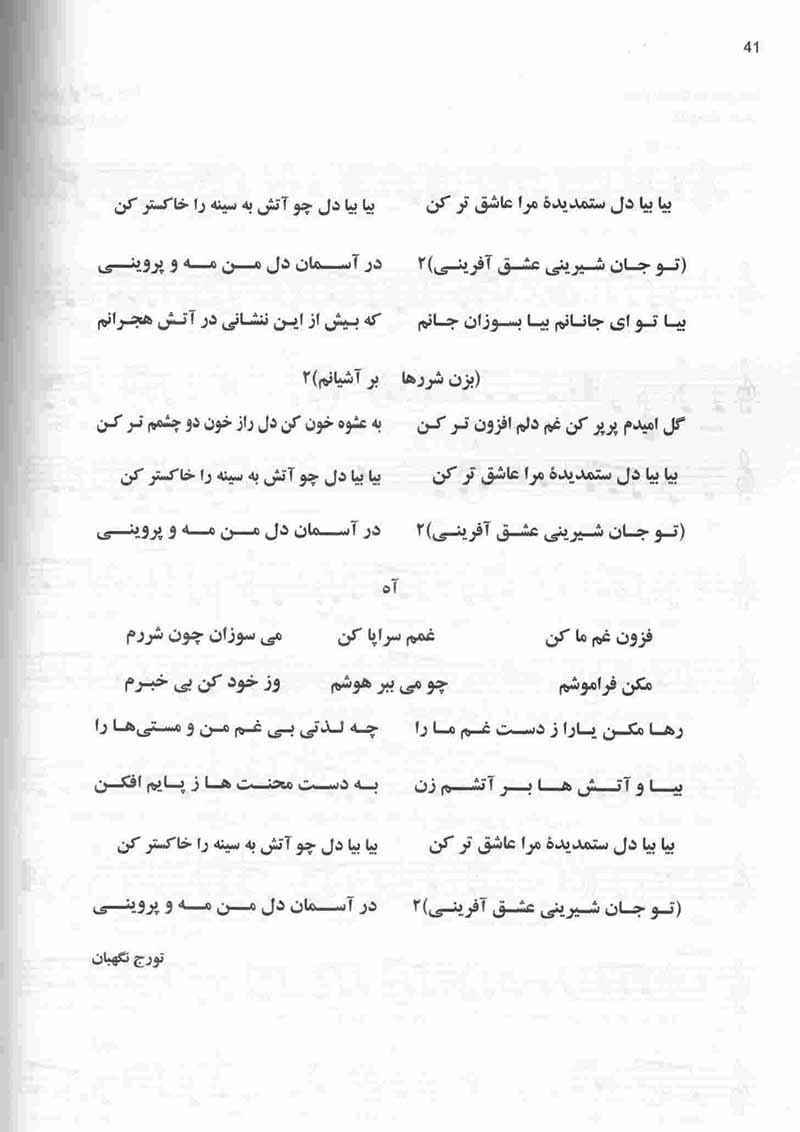 41
بیا بیا دل ستمدیدهٔ مرا عاشق تر کن بیا بیا دل چو آتش به سینه را خاکستر کن
(تو جان شیرینی عشق آفرینی)۲ در آسمان دل من مه و پروینی
بیا تو ای جانانم بیا بسوزان جانم که بیش از این ننشانی در آتش هجرانم
(بزن شررها بر آشیانم)۲
گل امیدم پرپر کن غم دلم افزون تر کن به عشوه خون کن دل راز خون دو چشمم تر کن
بیا بیا دل ستمدیدهٔ مرا عاشق تر کن بیا بیا دل چو آتش به سینه را خاکستر کن
(تو جان شیرینی عشق آفرینی)۲ در آسمان دل من مه و پروینی
آه
فزون غم ما کن غمم سراپا کن می سوزان چون شررم
مکن فراموشم چو می ببر هوشم وز خود کن بی خبرم
رها مکن یارا ز دست غم ما را چه لذتی بی غم من و مستی‌ها را
بیا و آتش ها بر آتشم زن به دست محنت ها ز پایم افکن
بیا بیا دل ستمدیدهٔ مرا عاشق تر کن بیا بیا دل چو آتش به سینه را خاکستر کن
(تو جان شیرینی عشق آفرینی)۲ در آسمان دل من مه و پروینی
تورج نگهبان